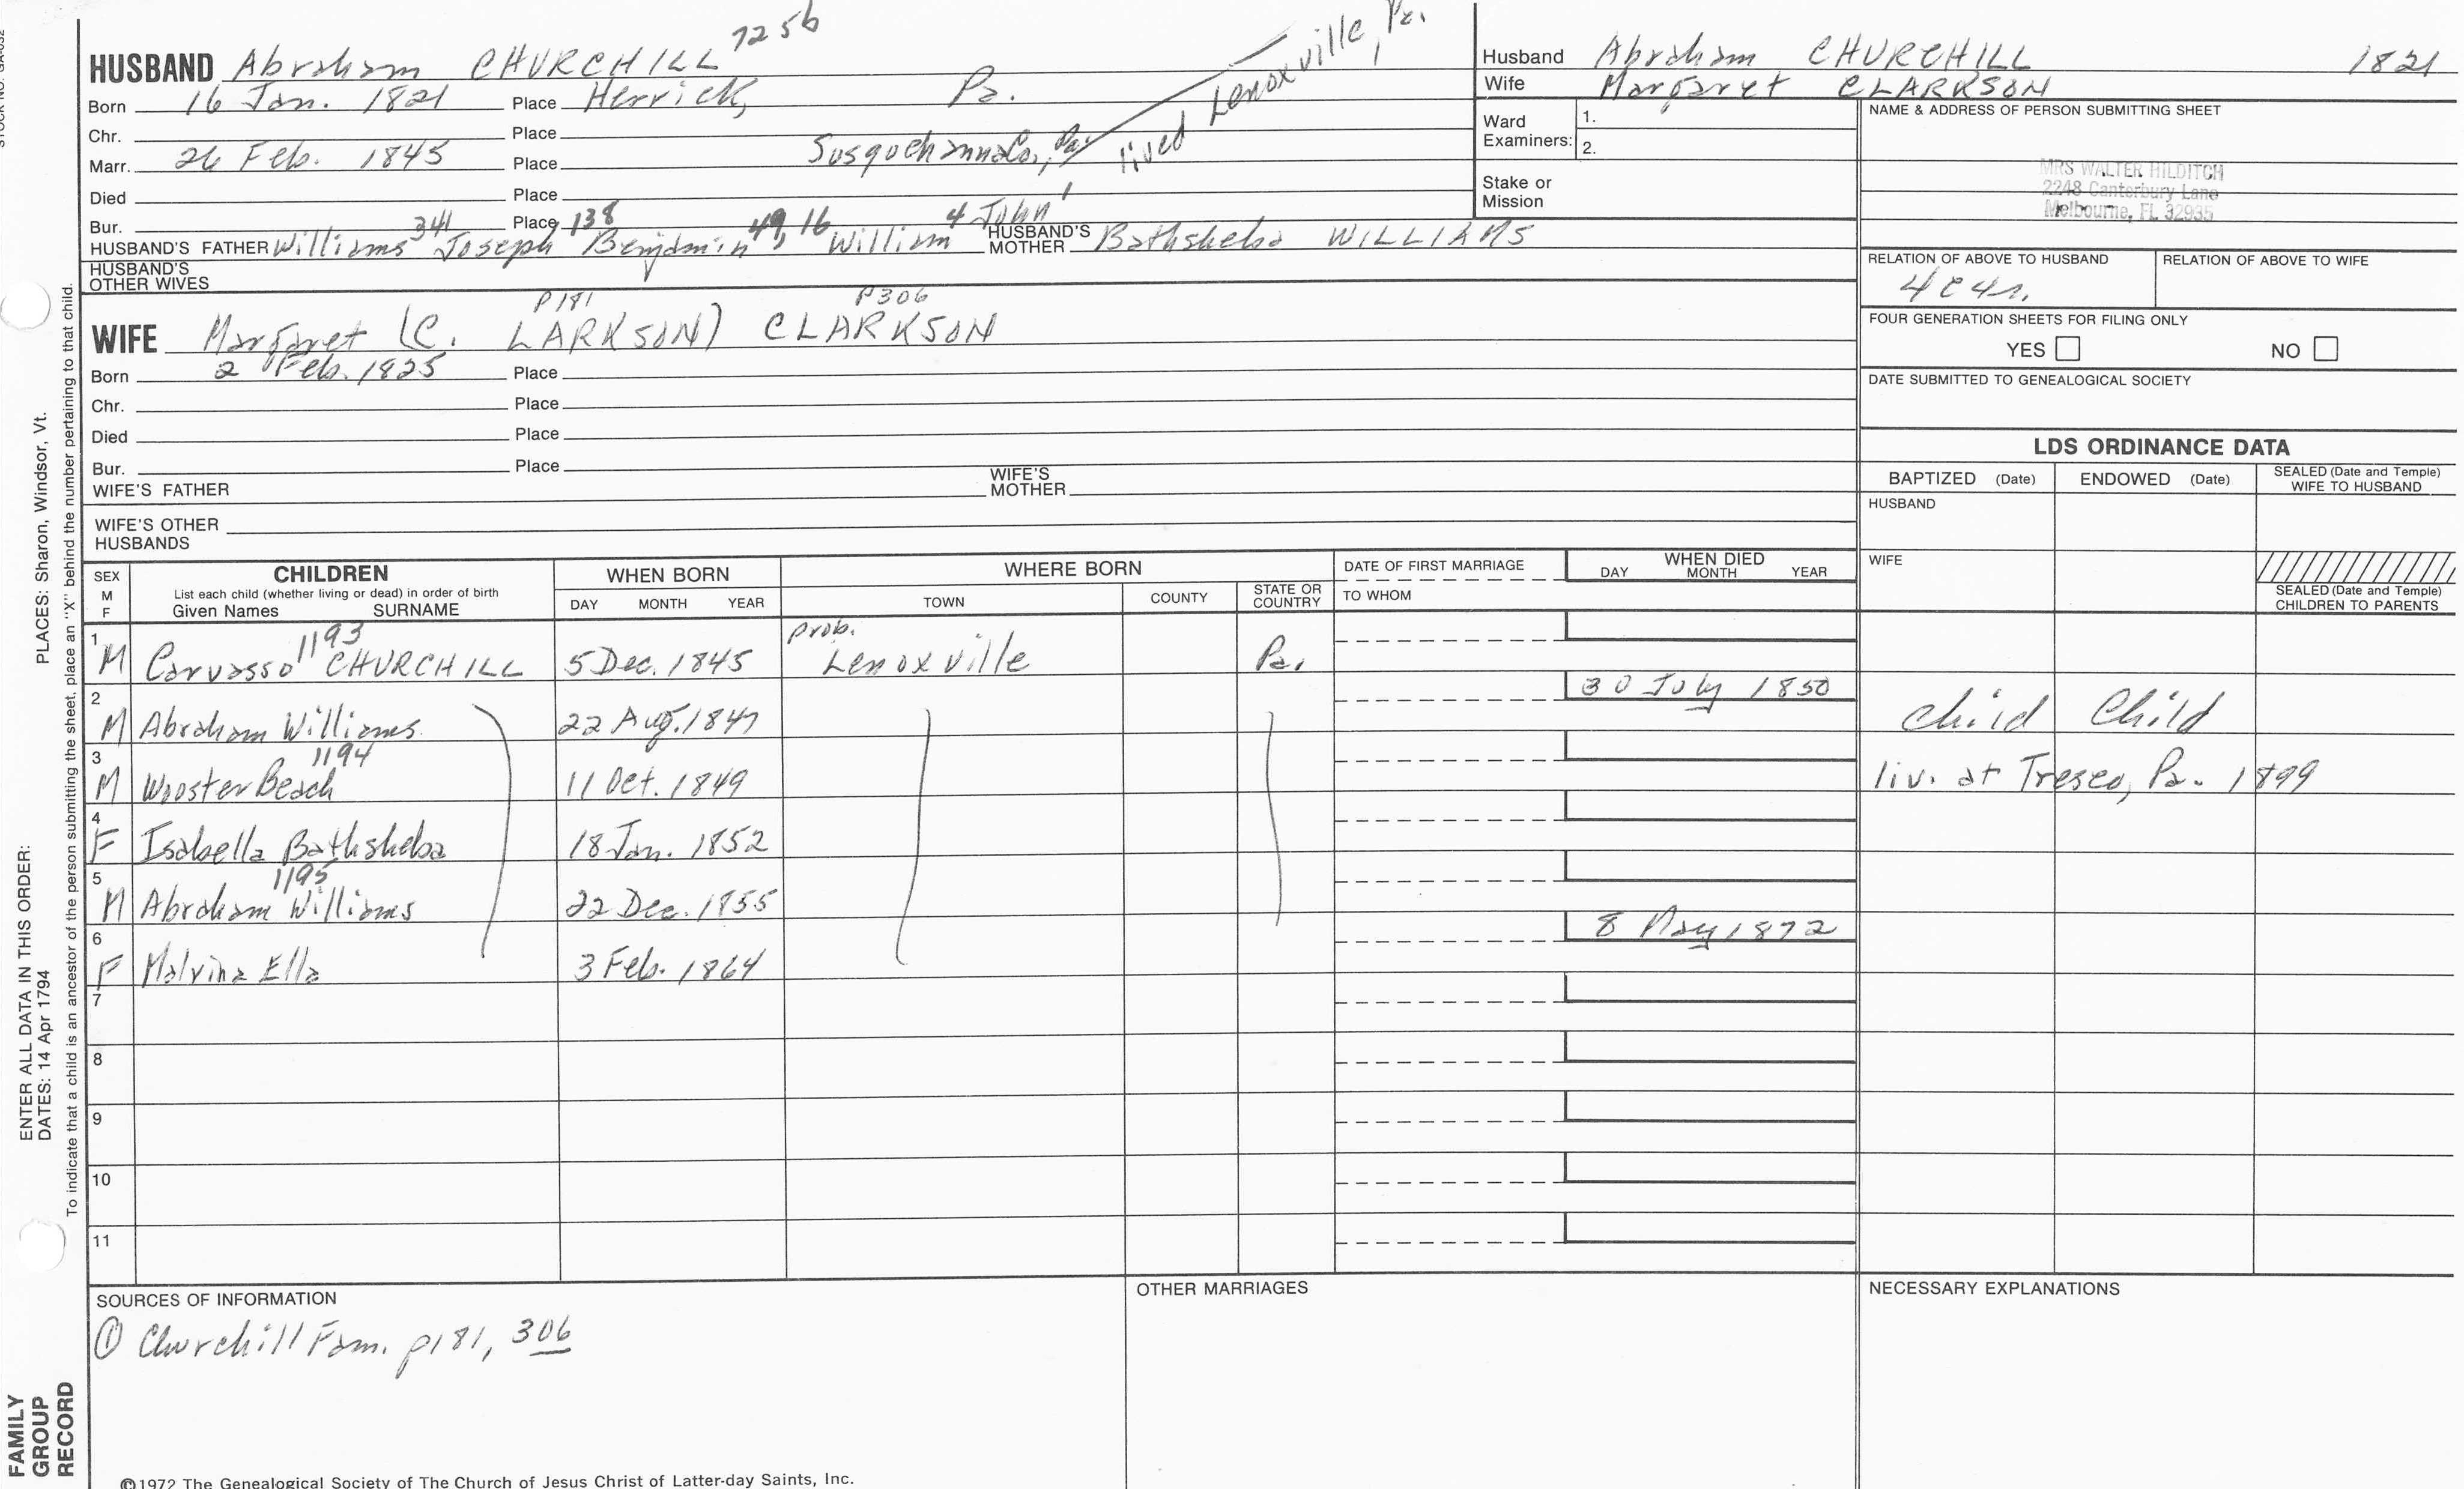 STOCK NO. GA-032
HUSBAND Abraham CHURCHILL 725b
Born 16 Jan. 1821 Place Herrick, Pa.
Chr. Place
Marr. 26 Feb. 1845 Place Susquehanna Co., Pa. lived Lenoxville, Pa.
Died Place
Bur. Place
HUSBAND'S FATHER Williams 341 Joseph 138 Benjamin 49, 16 William 4 John 1 HUSBAND'S MOTHER Bathsheba WILLIAMS
HUSBAND'S OTHER WIVES
P181 P306
WIFE Margaret (C. LARKSON) CLARKSON
Born 2 Feb. 1825 Place
Chr. Place
Died Place
Bur. Place
WIFE'S FATHER WIFE'S MOTHER
WIFE'S OTHER HUSBANDS
Husband Abraham CHURCHILL 1821
Wife Margaret CLARKSON
Ward Examiners: 1.
2.
Stake or Mission
NAME & ADDRESS OF PERSON SUBMITTING SHEET
MRS WALTER HILDITCH
2248 Canterbury Lane
Melbourne, FL 32935
RELATION OF ABOVE TO HUSBAND RELATION OF ABOVE TO WIFE
4c4r.
FOUR GENERATION SHEETS FOR FILING ONLY
YES NO
DATE SUBMITTED TO GENEALOGICAL SOCIETY
LDS ORDINANCE DATA
BAPTIZED (Date) ENDOWED (Date) SEALED (Date and Temple) WIFE TO HUSBAND
HUSBAND
WIFE
SEALED (Date and Temple) CHILDREN TO PARENTS
SEX M F
CHILDREN
List each child (whether living or dead) in order of birth
Given Names SURNAME
WHEN BORN
DAY MONTH YEAR
WHERE BORN
TOWN COUNTY STATE OR COUNTRY
DATE OF FIRST MARRIAGE
TO WHOM
WHEN DIED
DAY MONTH YEAR
1 M Carvasso 1193 CHURCHILL 5 Dec. 1845 prob. Lenoxville Pa.
2 M Abraham Williams 22 Aug. 1847 30 July 1850 child Child
3 M Wooster Beach 1194 11 Oct. 1849 liv. at Tresco, Pa. 1899
4 F Isabella Bathsheba 18 Jan. 1852
5 M Abraham Williams 1195 22 Dec. 1855
6 F Malvina Ella 3 Feb. 1864 8 May 1872
7
8
9
10
11
SOURCES OF INFORMATION
① Churchill Fam. p181, 306
OTHER MARRIAGES
NECESSARY EXPLANATIONS
©1972 The Genealogical Society of The Church of Jesus Christ of Latter-day Saints, Inc.
ENTER ALL DATA IN THIS ORDER:
DATES: 14 Apr 1794 PLACES: Sharon, Windsor, Vt.
To indicate that a child is an ancestor of the person submitting the sheet, place an "X" behind the number pertaining to that child.
FAMILY
GROUP
RECORD